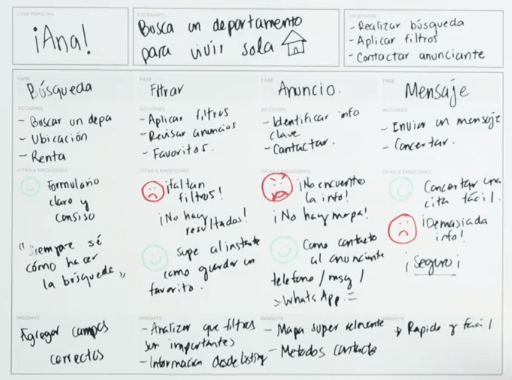 ¡Ana!
Busca un departamento
para vivir sola
- Realizar búsqueda
- Aplicar filtros
- Contactar anunciante
FASE
Búsqueda
ACCIONES
- Boscar un depa
- Ubicación
- Renta
CITAS & EMOCIONES
Formulario
claro y
consiso
"Siempre sé
cómo hacer
la búsqueda"
INSIGHTS
Agregar campos
correctos
FASE
Filtrar
ACCIONES
- Aplicar filtros
- Revisar anuncios
- Favoritos.
CITAS & EMOCIONES
¡Faltan
filtros!
¡No hay
resultados!
Supe al instante
como guardar un
favorito.
INSIGHTS
- Analizar que filtros
son importantes
- Informacion desde listing
FASE
Anuncio.
ACCIONES
- Identificar info
clave
- Contactar.
CITAS & EMOCIONES
¡No encuentro
la info!
¡No hay mapa!
Como contacto
al anunciante
telefono / msg /
> WhatsApp.
INSIGHTS
- Mapa super relevante
- Metodos contacto
FASE
Mensaje
ACCIONES
- Enviar un mensaje
- Concertar.
CITAS & EMOCIONES
Concertar una
cita fácil.
¡Demasiada
info!
¡Seguro¡
Rapido y fácil